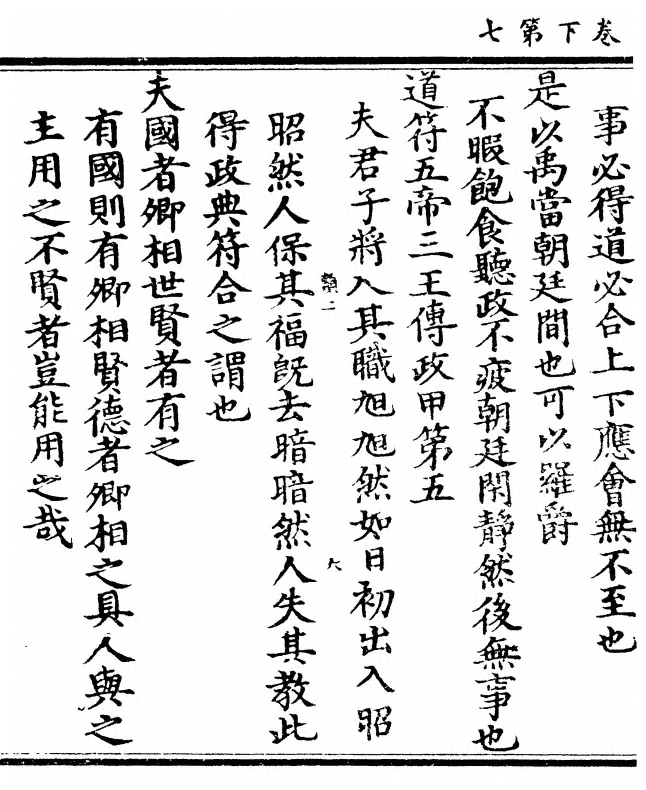 卷下第七
事必得道必合上下應會無不至也
是以禹當朝廷間也可以羅爵
不暇飽食聽政不疲朝廷閑靜然後無事也
道符五帝三王傳政甲第五
夫君子將入其職旭旭然如日初出入昭
昭然人保其福旣去暗暗然人失其教此
得政典符合之謂也
夫國者卿相世賢者有之
有國則有卿相賢德者卿相之具人與之
主用之不賢者豈能用之哉